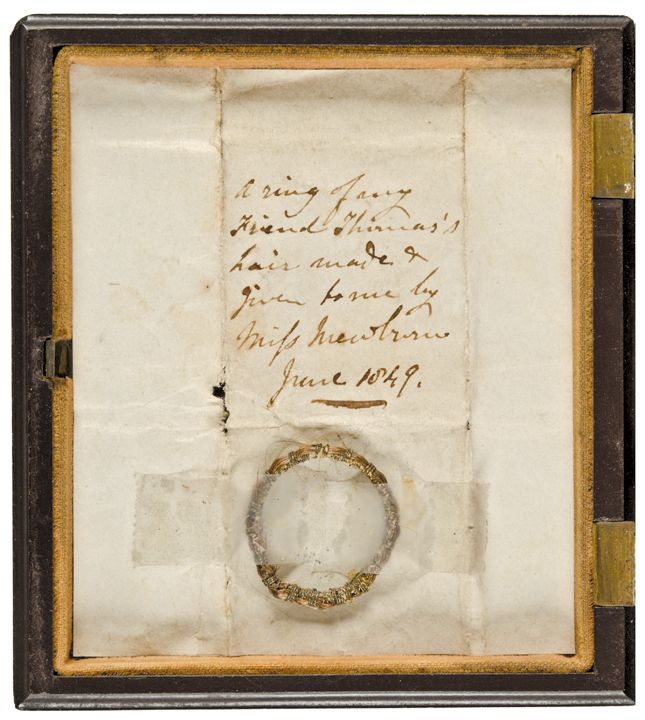 A ring of my
Friend Thomas's
hair made &
given to me by
Miss Mewburn
June 1849.